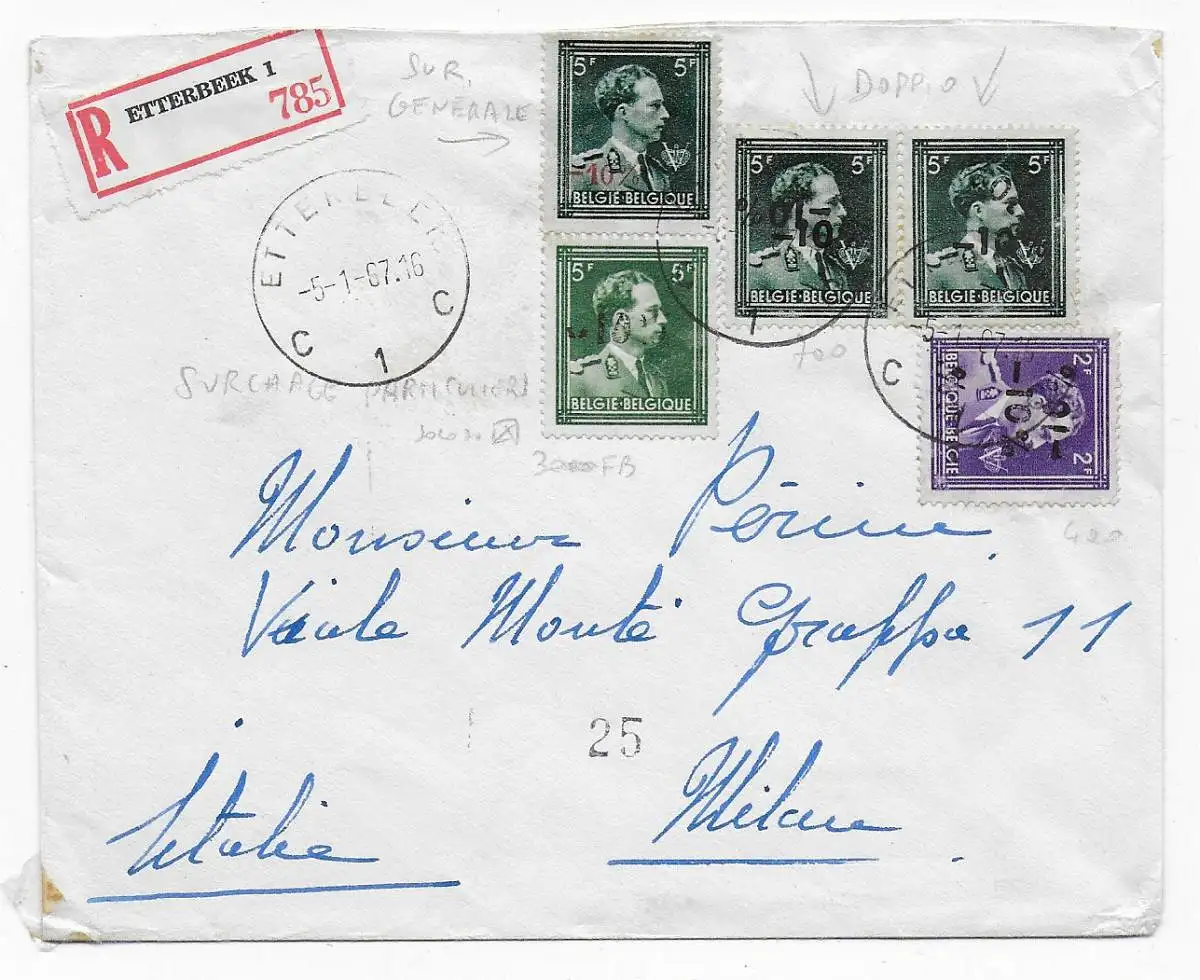 R ETTERBEEK 1
785
SUR.
GENERALE
DOPPIO
5F 5F
-10%
BELGIE·BELGIQUE
5F 5F
-10%
-10%
BELGIE·BELGIQUE
5F 5F
-10%
BELGIE·BELGIQUE
5F 5F
-10%
BELGIE·BELGIQUE
2F 2F
-10%
-10%
BELGIQUE·BELGIE
-5-1-67.16
C 1 C
-5-1-67.16
C
1
700
SURCHARGE PARTICULIERS
FB
400
Monsieur Périne
Viale Monte Grappa 11
25
Milan
Italie